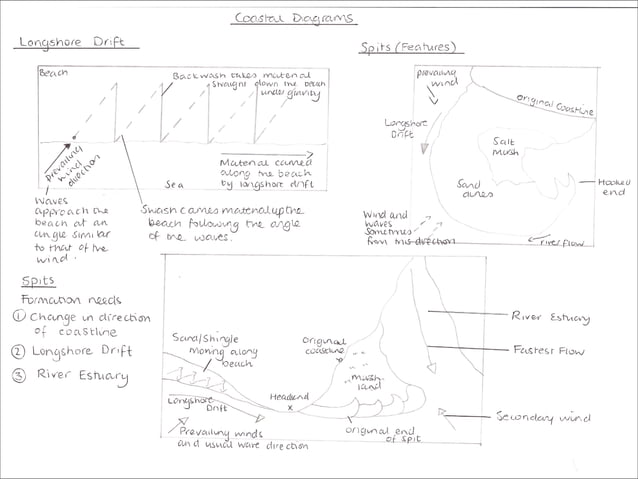 Coastal Diagrams
Longshore Drift
Beach
Backwash takes material
straight down the beach
under gravity
Prevailing
wind
direction
Material carried
along the beach
by longshore drift
Sea
Waves
approach the
beach at an
angle similar
to that of the
wind.
Swash carries material up the
beach following the angle
of the waves.
Spits (Features)
prevailing
wind
original coastline
Longshore
Drift
Salt
Marsh
Sand
dunes
Hooked
end
Wind and
waves
sometimes
from this direction
river flow
Spits
Formation needs
① Change in direction
of coastline
② Longshore Drift
③ River Estuary
Sand/Shingle
moving along
beach
original
coastline
marsh
land
Headland
x
Longshore
Drift
Prevailing winds
and usual wave direction
original end
of spit
River Estuary
Fastest Flow
Secondary wind